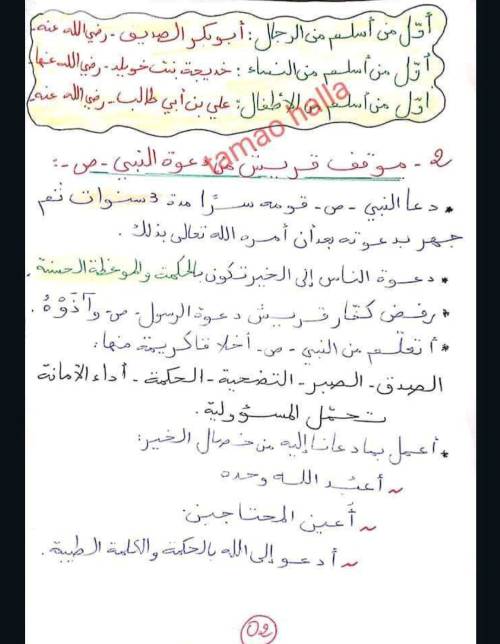 أوّل من أسلم من الرجال: أبو بكر الصديق - رضي الله عنه -
أوّل من أسلم من النساء: خديجة بنت خويلد - رضي الله عنها
أوّل من أسلم من الأطفال: علي بن أبي طالب - رضي الله عنه -
tamao halla
2 - موقف قريش من دعوة النبي - ص - :
* دعا النبي - ص - قومه سرًّا مدة 3 سنوات ثم
جهر بدعوته بعد أن أمره الله تعالى بذلك.
* دعوة الناس إلى الخير تكون بالحكمة والموعظة الحسنة.
* رفض كفّار قريش دعوة الرسول - ص - وآذَوْهُ.
* أتعلّم من النبي - ص - أخلاقا كريمة منها:
الصدق - الصبر - التضحية - الحكمة - أداء الأمانة
تحمّل المسؤولية.
* أعمل بما دعانا إليه من خصال الخير:
~ أعبد الله وحده
~ أُعين المحتاجين.
~ أدعو إلى الله بالحكمة والكلمة الطيبة.
02